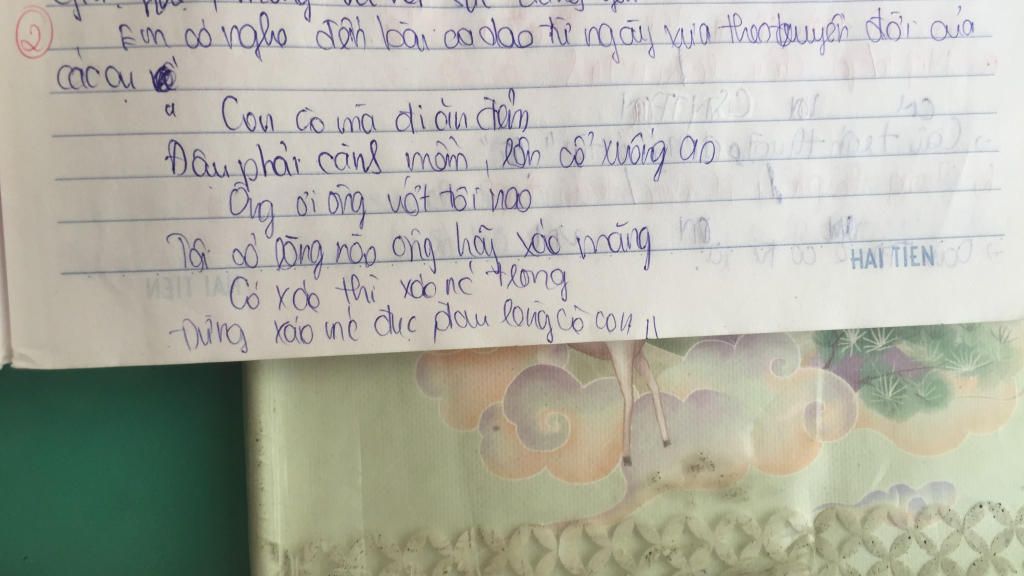 ② Em có nghe đến bài ca dao từ ngày xưa theo truyền đời của
các cụ
" Con cò mà đi ăn đêm
Đậu phải cành mềm, lộn cổ xuống ao
Ông ơi ông vớt tôi nao
Tôi có lòng nào ông hãy xáo măng
Có xáo thì xáo nc trong
Đừng xáo nc đục đau lòng cò con "
HAI TIEN